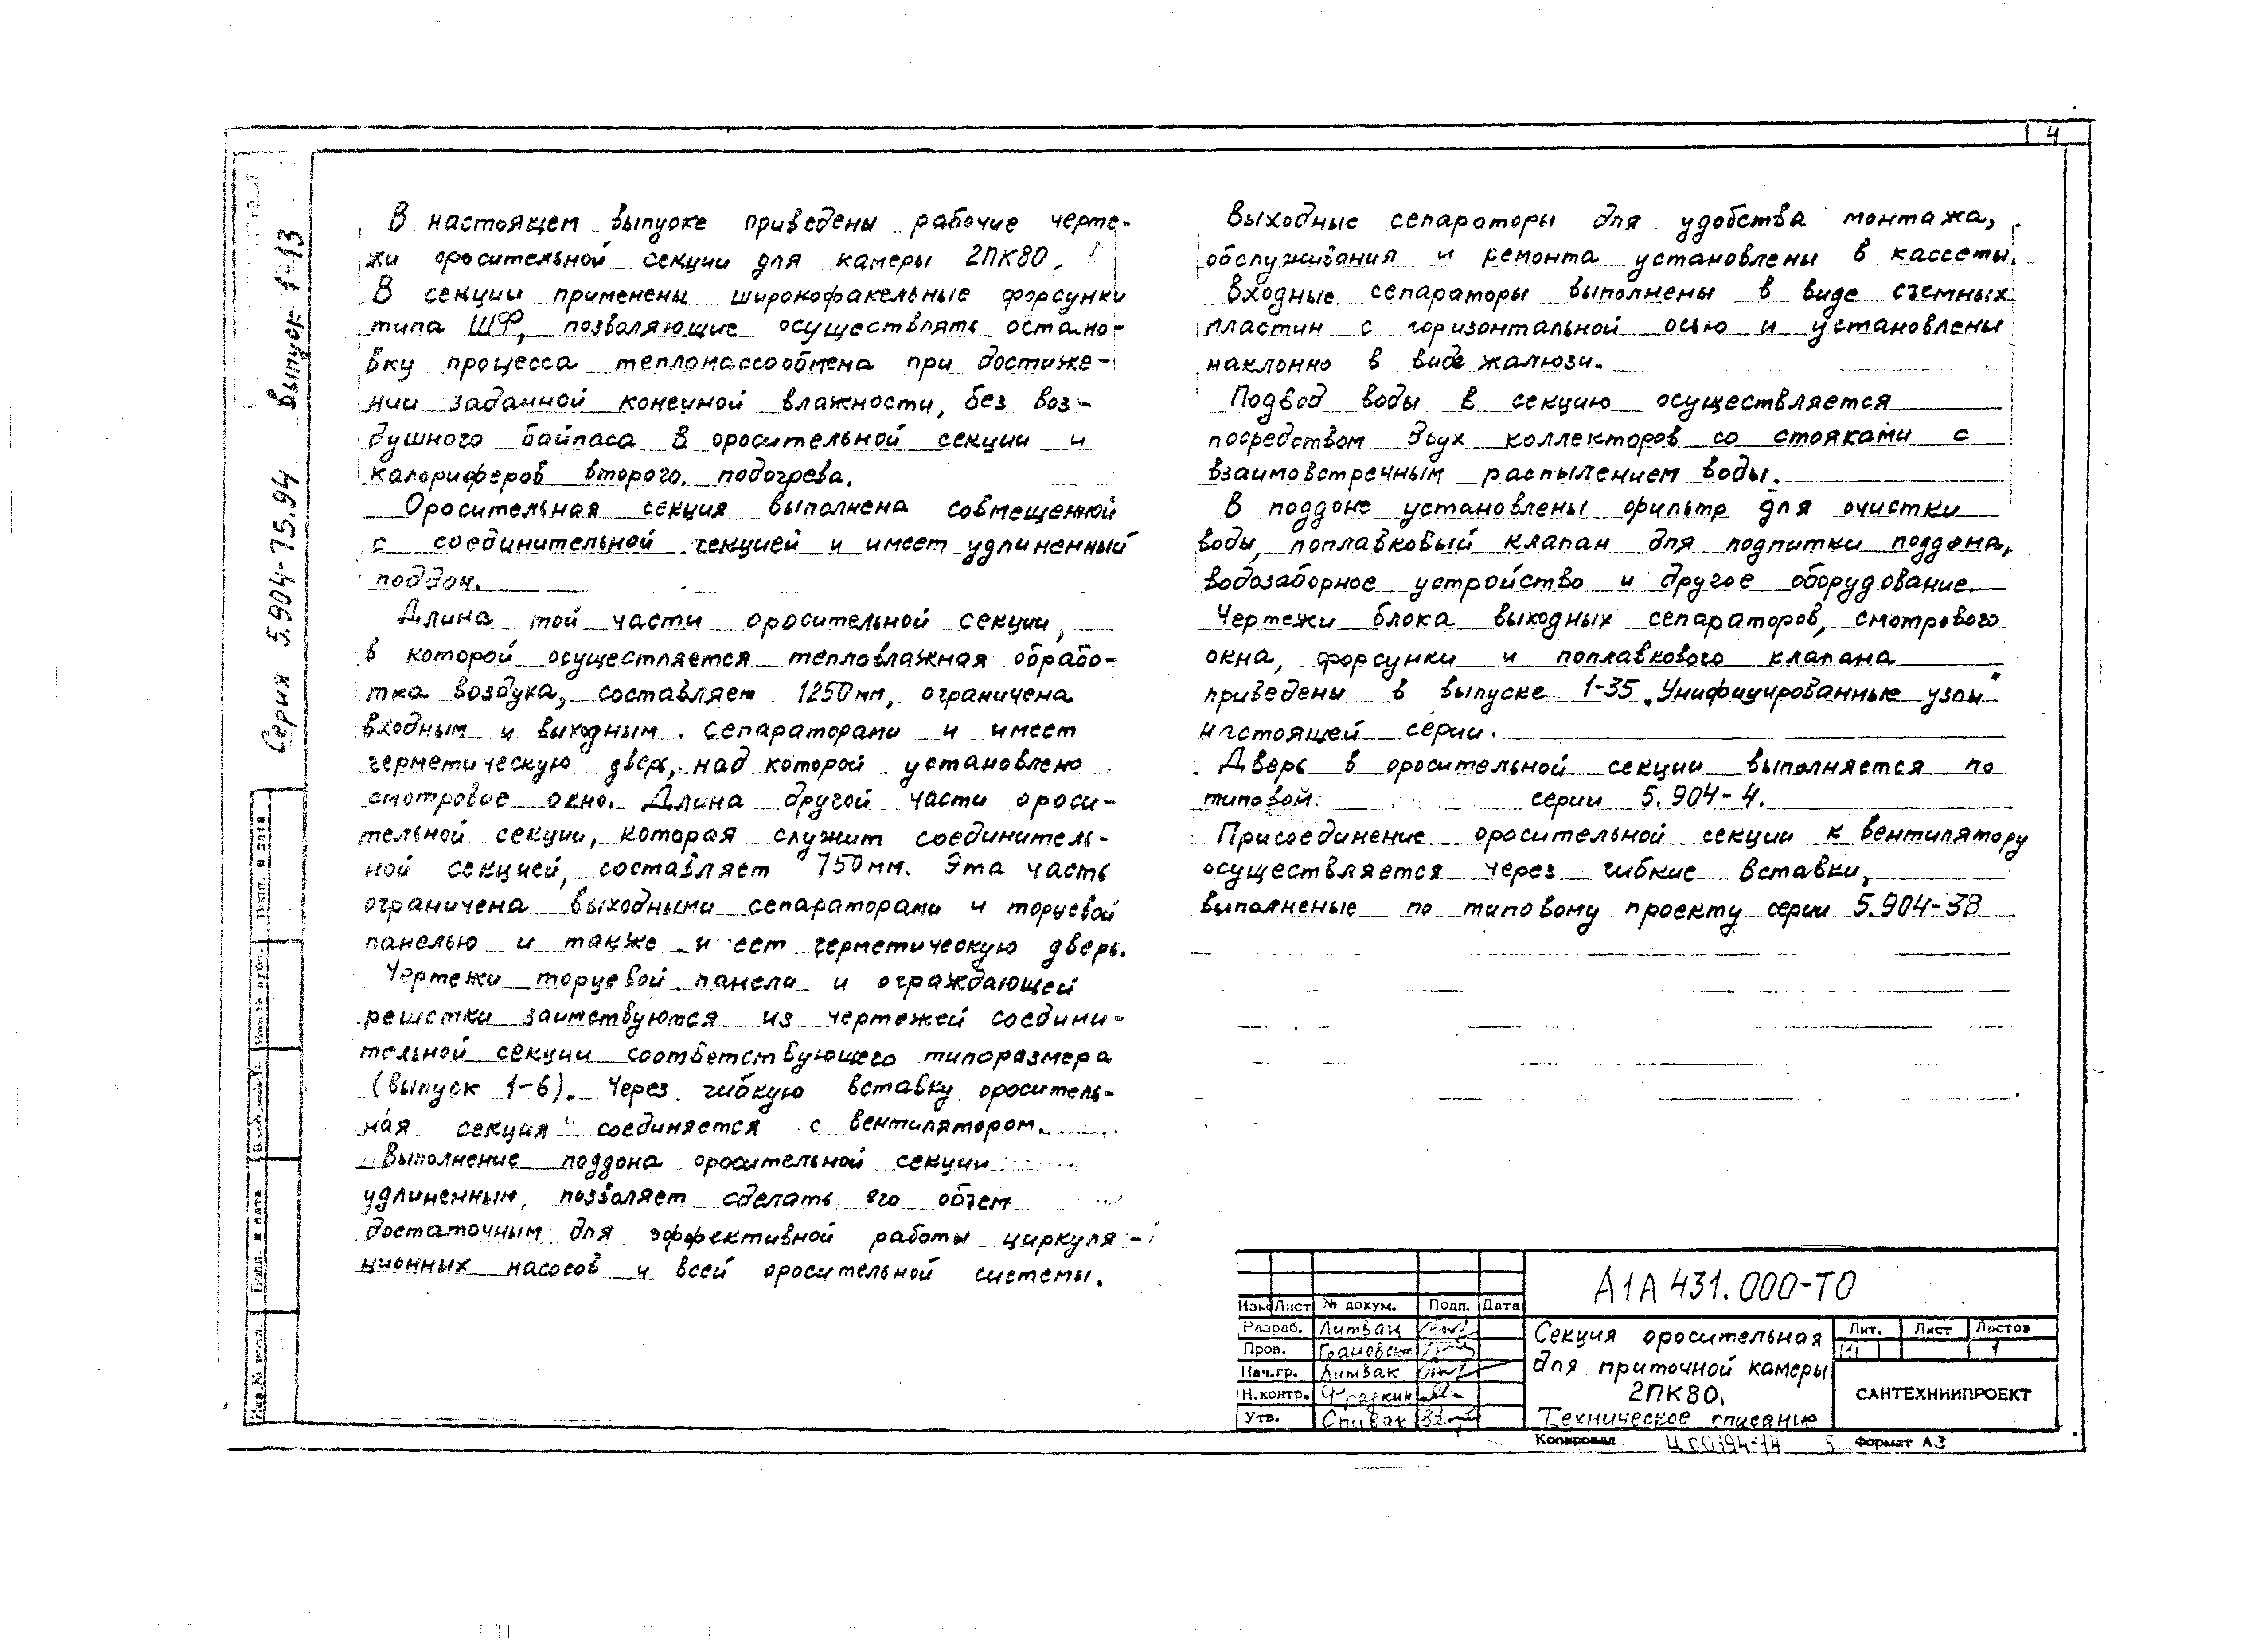 4
В настоящем выпуске приведены рабочие черте-
жи оросительной секции для камеры 2ПК80.
В секции применены широкофакельные форсунки
типа ШФ, позволяющие осуществлять остано-
вку процесса тепломассообмена при достиже-
нии заданной конечной влажности, без воз-
душного байпаса в оросительной секции и
калориферов второго подогрева.
Оросительная секция выполнена совмещенной
с соединительной секцией и имеет удлиненный
поддон.
Длина той части оросительной секции,
в которой осуществляется тепловлажная обрабо-
тка воздуха, составляет 1250мм, ограничена
входным и выходным сепараторами и имеет
герметическую дверь, над которой установлено
смотровое окно. Длина другой части ороси-
тельной секции, которая служит соединитель-
ной секцией, составляет 750мм. Эта часть
ограничена выходными сепараторами и торцевой
панелью и также имеет герметическую дверь.
Чертежи торцевой панели и ограждающей
решетки заимствуются из чертежей соедини-
тельной секции соответствующего типоразмера
(выпуск 1-6). Через гибкую вставку ороситель-
ная секция соединяется с вентилятором.
Выполнение поддона оросительной секции
удлиненным, позволяет сделать его объем
достаточным для эффективной работы циркуля-
ционных насосов и всей оросительной системы.
Выходные сепараторы для удобства монтажа,
обслуживания и ремонта установлены в кассеты.
Входные сепараторы выполнены в виде съемных
пластин с горизонтальной осью и установлены
наклонно в виде жалюзи.
Подвод воды в секцию осуществляется
посредством двух коллекторов со стояками с
взаимовстречным распылением воды.
В поддоне установлены фильтр для очистки
воды, поплавковый клапан для подпитки поддона,
водозаборное устройство и другое оборудование.
Чертежи блока выходных сепараторов, смотрового
окна, форсунки и поплавкового клапана
приведены в выпуске 1-35 „Унифицированные узлы"
настоящей серии.
Дверь в оросительной секции выполняется по
типовой серии 5.904-4.
Присоединение оросительной секции к вентилятору
осуществляется через гибкие вставки,
выполненые по типовому проекту серии 5.904-38
Серия 5.904-75.94 выпуск 1-13
Подп. и дата
Инв.№ дубл.
Взам. инв.№
Подп. и дата
Инв.№ подл.
А1А431.000-ТО
Изм Лист № докум. Подп. Дата
Разраб. Литвак
Пров. Грановск
Нач.гр. Литвак
Н.контр. Фрадкин
Утв. Спивак
Секция оросительная
для приточной камеры
2ПК80.
Техническое описание
Лит. Лист Листов
1
САНТЕХНИИПРОЕКТ
Копировал Ц00194-14 5 Формат А3